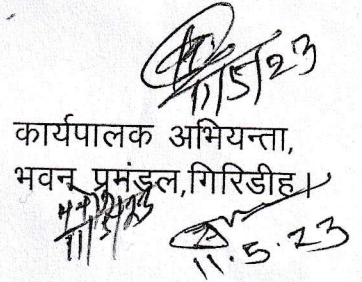 11/5/23
कार्यपालक अभियन्ता,
भवन प्रमंडल,गिरिडीह।
11/5/23
11.5.23